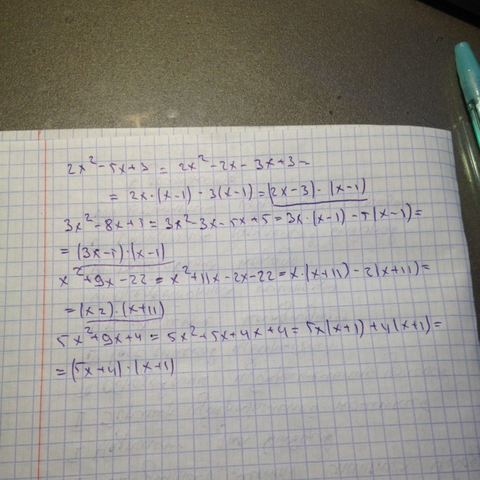 2x² - 5x + 3 = 2x² - 2x - 3x + 3 =
= 2x·(x-1) - 3(x-1) = (2x-3)·(x-1)
3x² - 8x + 5 = 3x² - 3x - 5x + 5 = 3x·(x-1) - 5(x-1) =
= (3x-5)·(x-1)
x² + 9x - 22 = x² + 11x - 2x - 22 = x·(x+11) - 2(x+11) =
= (x 2)·(x+11)
5x² + 9x + 4 = 5x² + 5x + 4x + 4 = 5x(x+1) + 4(x+1) =
= (5x+4)·(x+1)